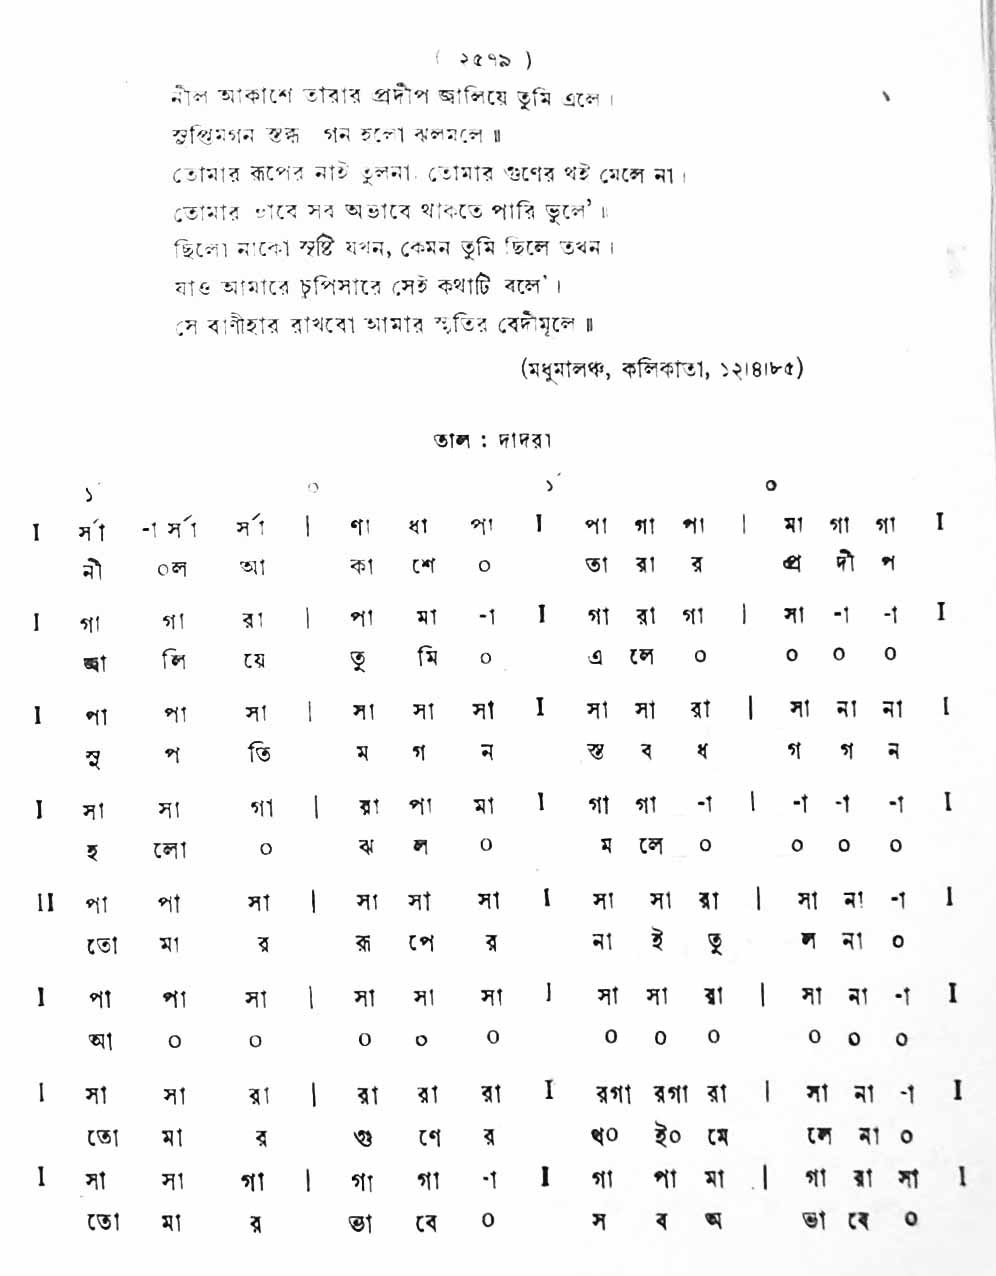 ( ২৫৭৯ )
নীল আকাশে তারার প্রদীপ জ্বালিয়ে তুমি এলে ।
সুপ্তিমগন স্তব্ধ গগন হলো ঝলমলে ॥
তোমার রূপের নাই তুলনা, তোমার গুণের থই মেলে না ।
তোমার ভাবে সব অভাবে থাকতে পারি ভুলে’ ॥
ছিলো নাকো সৃষ্টি যখন, কেমন তুমি ছিলে তখন ।
যাও আমারে চুপিসারে সেই কথাটি বলে’ ।
সে বাণীহার রাখবো আমার স্মৃতির বেদীমূলে ॥
(মধুমালঞ্চ, কলিকাতা, ১২।৪।৮৫)
তাল : দাদরা
১´ ০ ১´ ০
I র্সা -া র্সা র্সা | ণা ধা পা I পা গা পা | মা গা গা I
নী ০ল আ কা শে ০ তা রা র প্র দী প
I গা গা রা | পা মা -া I গা রা গা | সা -া -া I
জ্বা লি য়ে তু মি ০ এ লে ০ ০ ০ ০
I পা পা সা | সা সা সা I সা সা রা | সা না না I
সু প তি ম গ ন স্ত ব ধ গ গ ন
I সা সা গা | রা পা মা I গা গা -া | -া -া -া I
হ লো ০ ঝ ল ০ ম লে ০ ০ ০ ০
II পা পা সা | সা সা সা I সা সা রা | সা না -া I
তো মা র রূ পে র না ই তু ল না ০
I পা পা সা | সা সা সা I সা সা রা | সা না -া I
আ ০ ০ ০ ০ ০ ০ ০ ০ ০ ০ ০
I সা সা রা | রা রা রা I রগা রগা রা | সা না -া I
তো মা র গু ণে র থ০ ই০ মে লে না ০
I সা সা গা | গা গা -া I গা পা মা | গা রা সা I
তো মা র ভা বে ০ স ব অ ভা বে ০